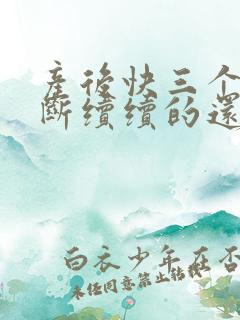 産後快三个
斷續續的還
白衣少年在否
未经同意禁止转载